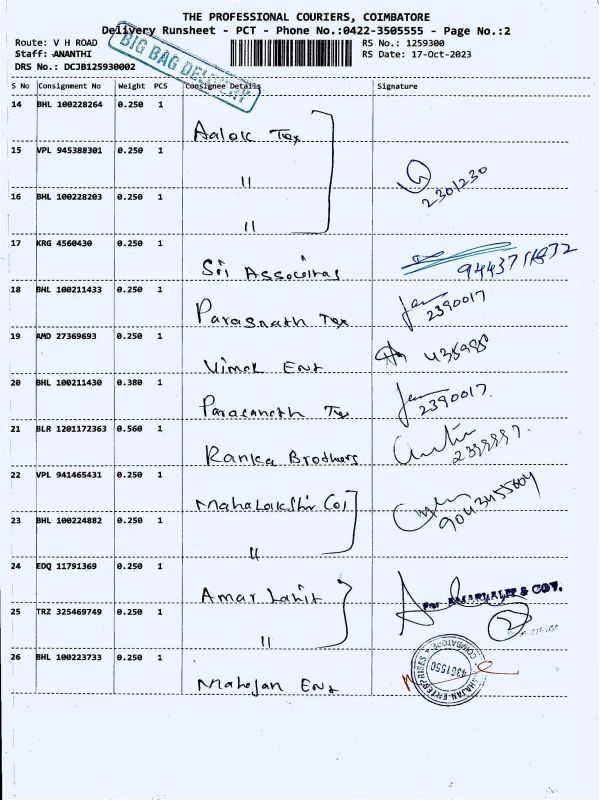 THE PROFESSIONAL COURIERS, COIMBATORE
Delivery Runsheet - PCT - Phone No.:0422-3505555 - Page No.:2
Route: V H ROAD
RS No.: 1259300
Staff: ANANTHI
RS Date: 17-Oct-2023
DRS No.: DCJB125930002
BIG BAG DELIVERY
S No Consignment No Weight PCS Consignee Details Signature
14 BHL 100228264 0.250 1 Aalok Tex
15 VPL 945388301 0.250 1 "
2301230
16 BHL 100228203 0.250 1 "
17 KRG 4560430 0.250 1 Sri
18 BHL 100211433 0.250 1 Parasnath Tex 2390017
19 AMD 27369693 0.250 1 Vimal Ent
20 BHL 100211430 0.380 1 Tex 2390017.
21 BLR 1201172363 0.560 1 Ranka Brothers
22 VPL 941465431 0.250 1
23 BHL 100224882 0.250 1 "
24 EDQ 11791369 0.250 1 Amar Lalit
For AMARLALIT & COY.
25 TRZ 325469749 0.250 1 "
2
26 BHL 100223733 0.250 1 Mahajan Ent
COIMBATORE
4361550